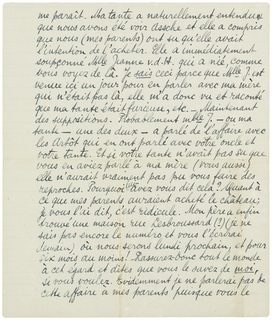 me paraît. Ma tante a naturellement entendu
que nous avons été voir Assche et elle a compris
que nous (mes parents) ont su qu'elle avait
l'intention de l'acheter. Elle a immédiatement
soupçonné Melle Jeanne v.d.H. qui a nié, comme
vous voyez de là. Je sais ceci parce que Melle J. est
venue ici un jour pour en parler avec ma mère
qui n'était pas là, elle m'a donc vu et raconté
que ma tante était furieuse, etc. — Maintenant
des suppositions. Probablement Melle J. — ou ma
tante — une des deux — a parlé de l'affaire avec
les Artôt qui en ont parlé avec votre oncle et
votre tante. Et si votre tante n'avait pas su que
vous en aviez parlé à ma mère (vous aussi)
elle n'aurait vraiment pas pu vous faire des
reproches. Pourquoi avez vous dit cela? Quant à
ce que mes parents auraient acheté le château,
je vous l'ai dit, c'est ridicule. Mon père a enfin
trouvé une maison rue Lesbroussard (!) (je ne
sais pas encore le numéro et vous l'écrirai
demain) où nous serons lundi prochain, et pour
six mois au moins! Rassurez donc tout le monde
à cet égard et dites que vous le savez de moi,
si vous voulez. Evidemment je ne parlerai pas de
cette affaire à mes parents puisque vous le